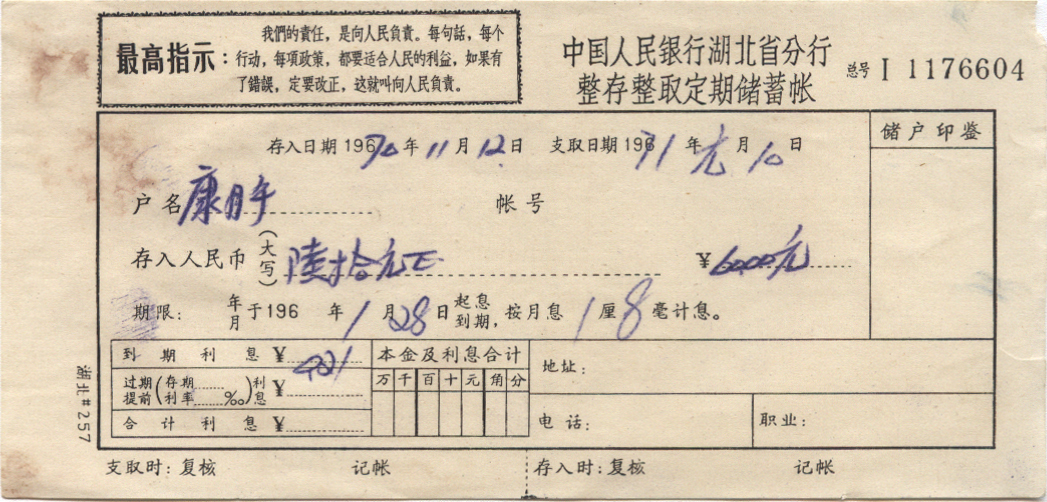 最高指示：
我們的責任，是向人民負責。每句話，每个
行动，每項政策，都要适合人民的利益，如果有
了錯誤，定要改正，这就叫向人民負責。
中国人民银行湖北省分行
整存整取定期储蓄帐
总号 I 1176604
存入日期 196 70 年 11 月 12 日 支取日期 196 71 年 元 月 10 日
储户印鉴
户名 康 帐号
存入人民币（大写）陆拾元正 ¥60.00元
期限： 年月 于196 年 1 月 28 日 起息到期，按月息 1 厘 8 毫计息。
到期利息 ¥ 0.21
本金及利息合计
万 千 百 十 元 角 分
过期提前（存期 利率 ‰）利息 ¥
合计利息 ¥
地址：
电话：
职业：
湖北#257
支取时：复核 记帐 存入时：复核 记帐